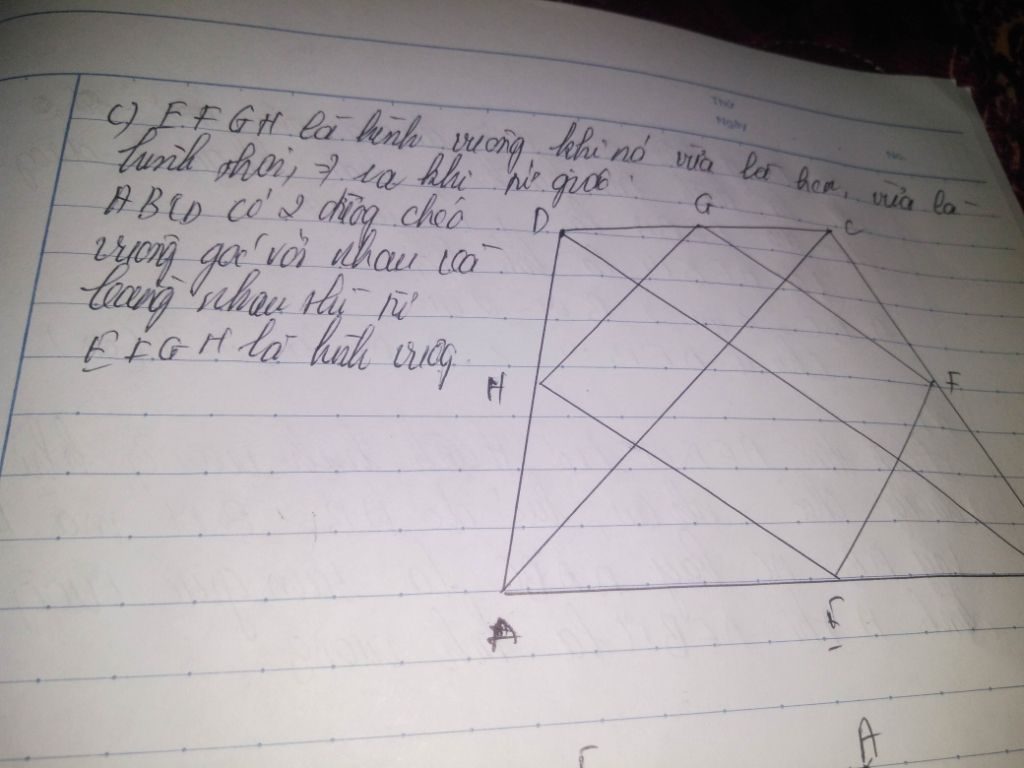 Thứ
Ngày
No.
c) EFGH là hình vuông khi nó vừa là hcn, vừa là
hình thoi, ⇒ ra khi tứ giác
ABCD có 2 đường chéo
vuông góc với nhau và
bằng nhau thì tứ
EFGH là hình vuông
D
G
C
H
F
A
E
A